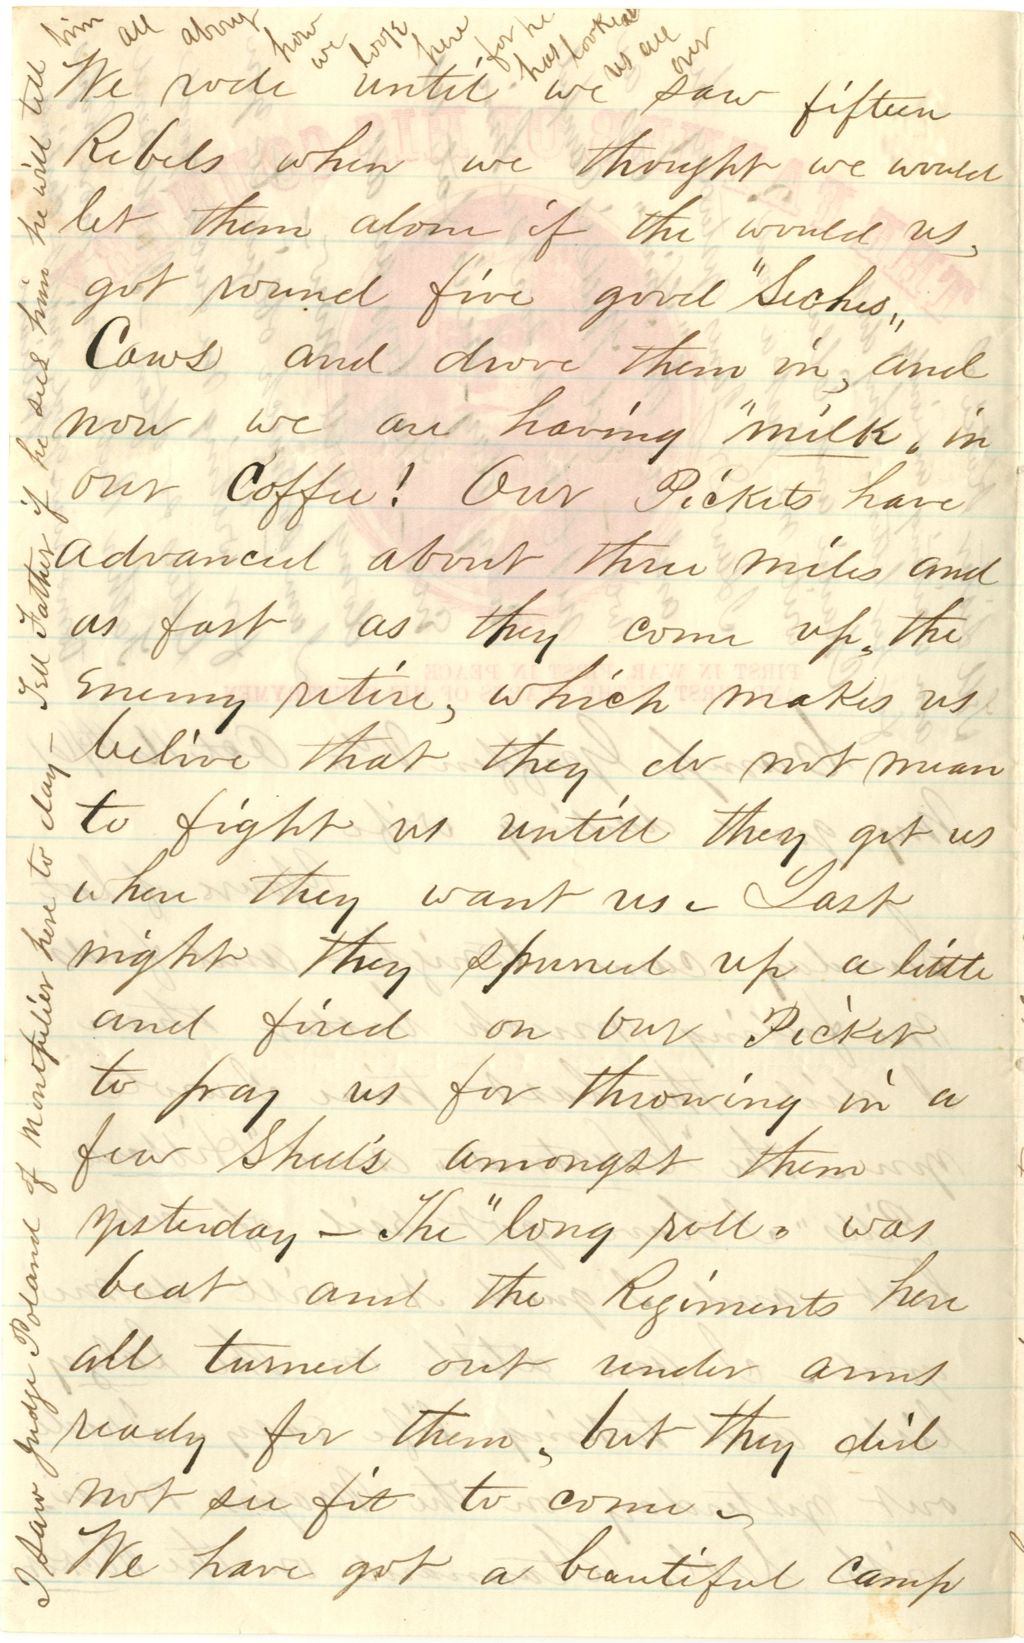 We rode until we saw fifteen
Rebels when we thought we would
let them alone if the would us,
got round five good "Seches„
Cows and drove them in, and
now we are having "milk„ in
our Coffee! Our Pickets have
advanced about three miles and
as fast as they come up, the
enemy retire, which makes us
belive that they do not mean
to fight us untill they get us
where they want us - Last
night they spruned up a little
and fired on our Picket
to pay us for throwing in a
few Shells amongst them
yesterday - The "long roll„ was
beat and the Regiments here
all turned out under arms
ready for them, but they did
not see fit to come -
We have got a beautiful camp
I saw Judge Poland of Montpelier here to day - Tell Father if he sees him he will tell
him all about how we look here for he has looked us all over
FIRST IN WAR, FIRST IN PEACE